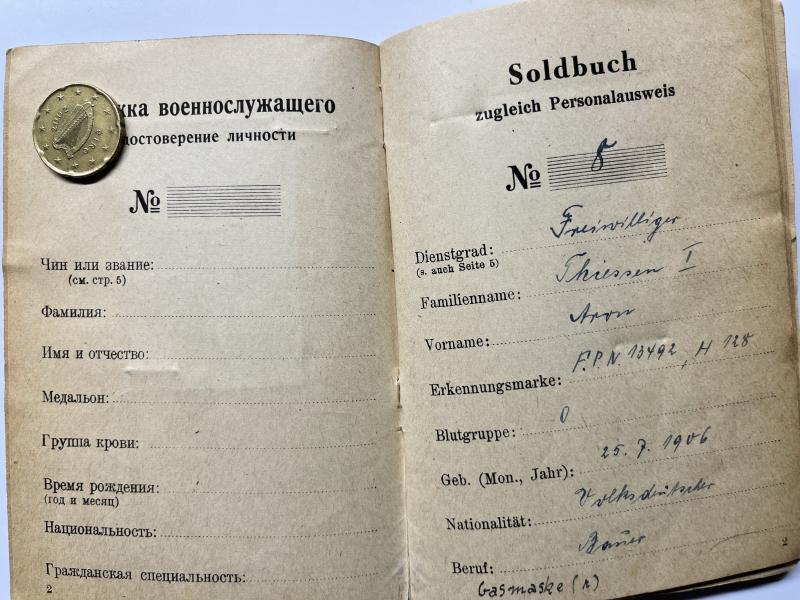 жка военнослужащего
достоверение личности
№
Чин или звание:
(см. стр. 5)
Фамилия:
Имя и отчество:
Медальон:
Группа крови:
Время рождения:
(год и месяц)
Национальность:
Гражданская специальность:
2
Soldbuch
zugleich Personalausweis
№ 8
Dienstgrad: Freiwilliger
(s. auch Seite 5)
Familienname: Thiessen I
Vorname: Aron
Erkennungsmarke: F.P.N. 13492, H 128
Blutgruppe: 0
Geb. (Mon., Jahr): 25. 7. 1906
Nationalität: Volksdeutscher
Beruf: Bauer
Gasmaske (2)
2